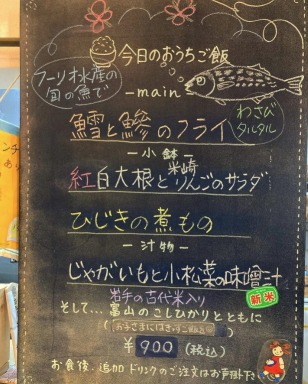 今日のおうちご飯
フーリオ水産の
旬の魚で
-main-
鱈と鰺のフライ
わさび
タルタル
-小鉢-
米崎
紅白大根とりんごのサラダ
ひじきの煮もの
-汁物-
じゃがいもと小松菜の味噌汁
岩手の古代米入り
新米
そして…富山のこしひかりとともに
¥900(税込)
お食後、追加ドリンクのご注文はお声掛け下